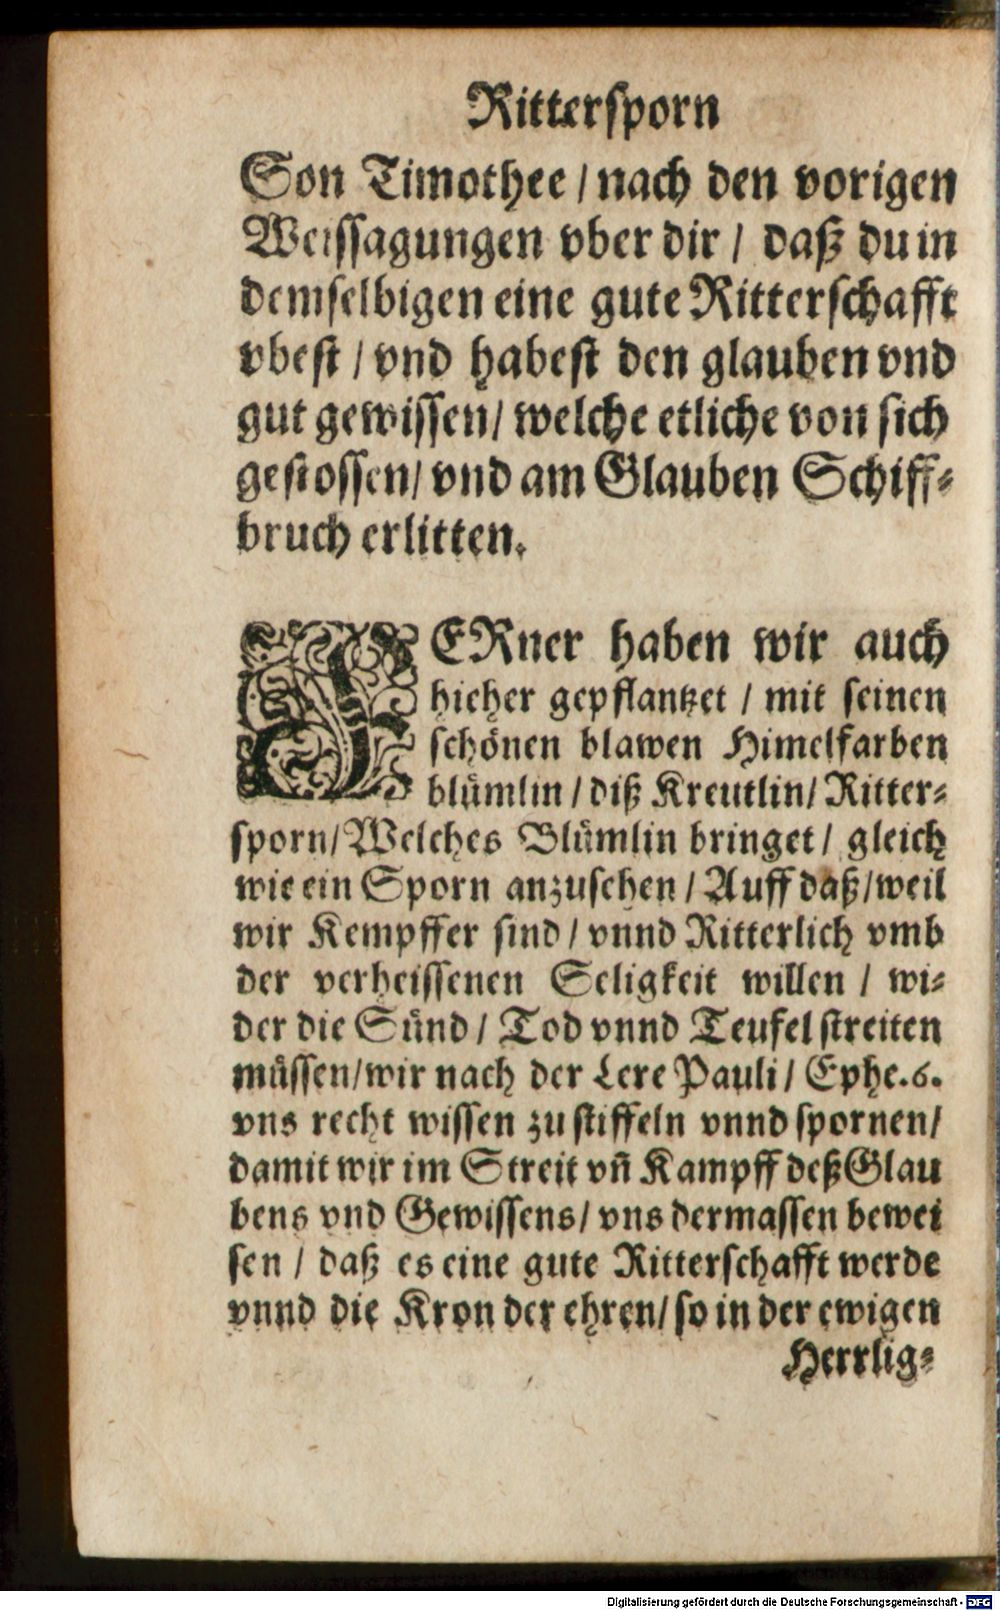 Ritterſporn
Son Timothee / nach den vorigen
Weiſſagungen vber dir / daß du in
demſelbigen eine gute Ritterſchafft
vbeſt / vnd habeſt den glauben vnd
gut gewiſſen / welche etliche von ſich
geſtoſſen / vnd am Glauben Schiff⸗
bruch erlitten.
FERner haben wir auch
hieher gepflantzet / mit ſeinen
ſchoͤnen blawen Himelfarben
bluͤmlin / diß Kreutlin / Ritter⸗
ſporn / Welches Bluͤmlin bringet / gleich
wie ein Sporn anzuſehen / Auff daß / weil
wir Kempffer ſind / vnnd Ritterlich vmb
der verheiſſenen Seligkeit willen / wi⸗
der die Suͤnd / Tod vnnd Teufel ſtreiten
muͤſſen / wir nach der Lere Pauli / Ephe. 6.
vns recht wiſſen zu ſtiffeln vnnd ſpornen /
damit wir im Streit vn̄ Kampff deß Glau
bens vnd Gewiſſens / vns dermaſſen bewei
ſen / daß es eine gute Ritterſchafft werde
vnnd die Kron der ehren / ſo in der ewigen
Herrlig⸗
Digitalisierung gefördert durch die Deutsche Forschungsgemeinschaft - DFG